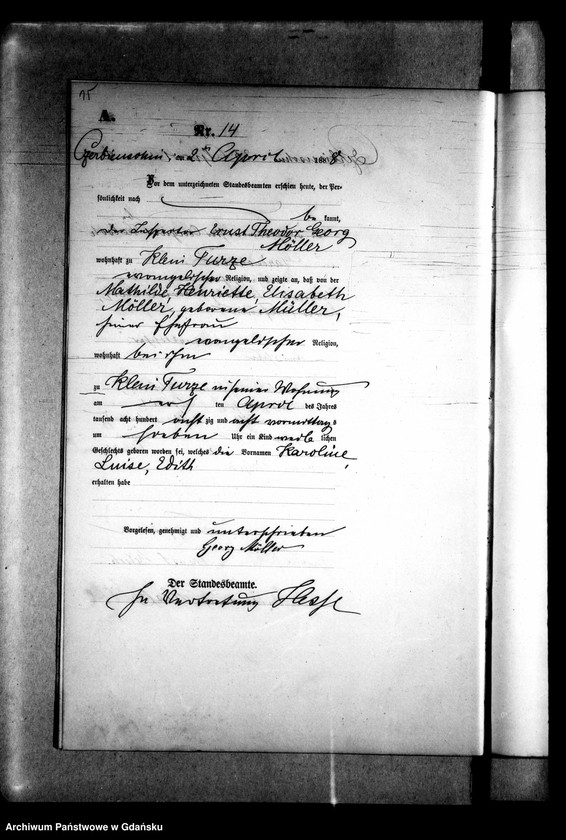 15
A.
Nr. 14
Czerbienschin, am 2ten April 1888
Vor dem unterzeichneten Standesbeamten erschien heute, der Per-
sönlichkeit nach
be kannt,
der Inspector Ernst Theodor Georg
Möller
wohnhaft zu Klein Turze
evangelischer Religion, und zeigte an, daß von der
Mathilde, Henriette, Elisabeth
Möller, geborene Müller,
seiner Ehefrau
evangelischer Religion,
wohnhaft bei ihm
zu Klein Turze in seiner Wohnung
am ersten April des Jahres
tausend acht hundert achtzig und acht vormittags
um sieben Uhr ein Kind weiblichen
Geschlechts geboren worden sei, welches die Vornamen Karoline,
Luise, Edith
erhalten habe
Vorgelesen, genehmigt und unterschrieben
Georg Möller
Der Standesbeamte.
In Vertretung Hesse
Archiwum Państwowe w Gdańsku